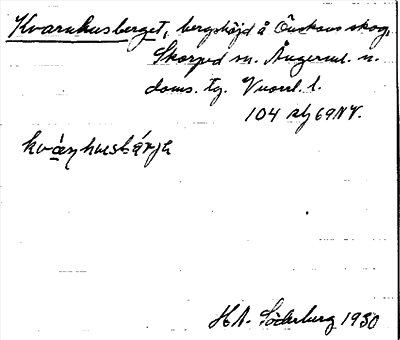 Kvarnhusberget, bergshöjd å Önskans skog,
Skorped sn. Ångerml. n.
doms. tg. Vuorl. l.
104 alj 69NV.
kvá̱ṇhusbárjə
H.A. Söderberg 1930